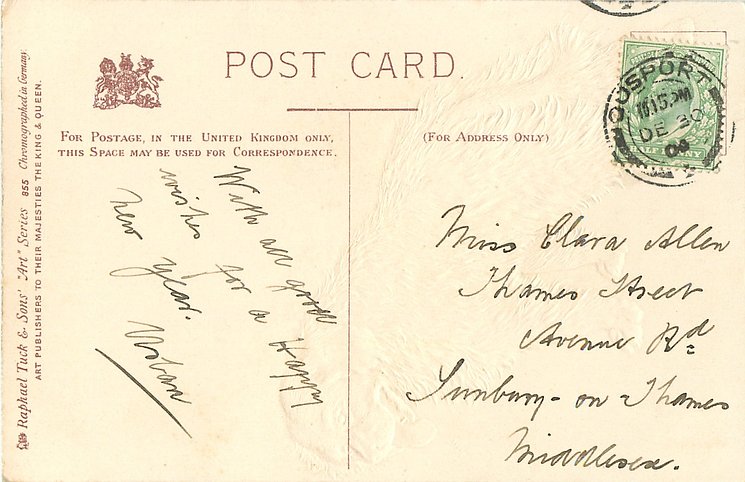 POST CARD.
FOR POSTAGE, IN THE UNITED KINGDOM ONLY,
THIS SPACE MAY BE USED FOR CORRESPONDENCE.
(FOR ADDRESS ONLY)
Raphael Tuck & Sons' "Art" Series 855 Chromographed in Germany
ART PUBLISHERS TO THEIR MAJESTIES THE KING & QUEEN.
With all good
wishes for a Happy
new year.
Miss Clara Allen
Thames Street
Avenue Rd
Sunbury-on-Thames
Middlesex.
GOSPORT
DE 30
HALF PENNY